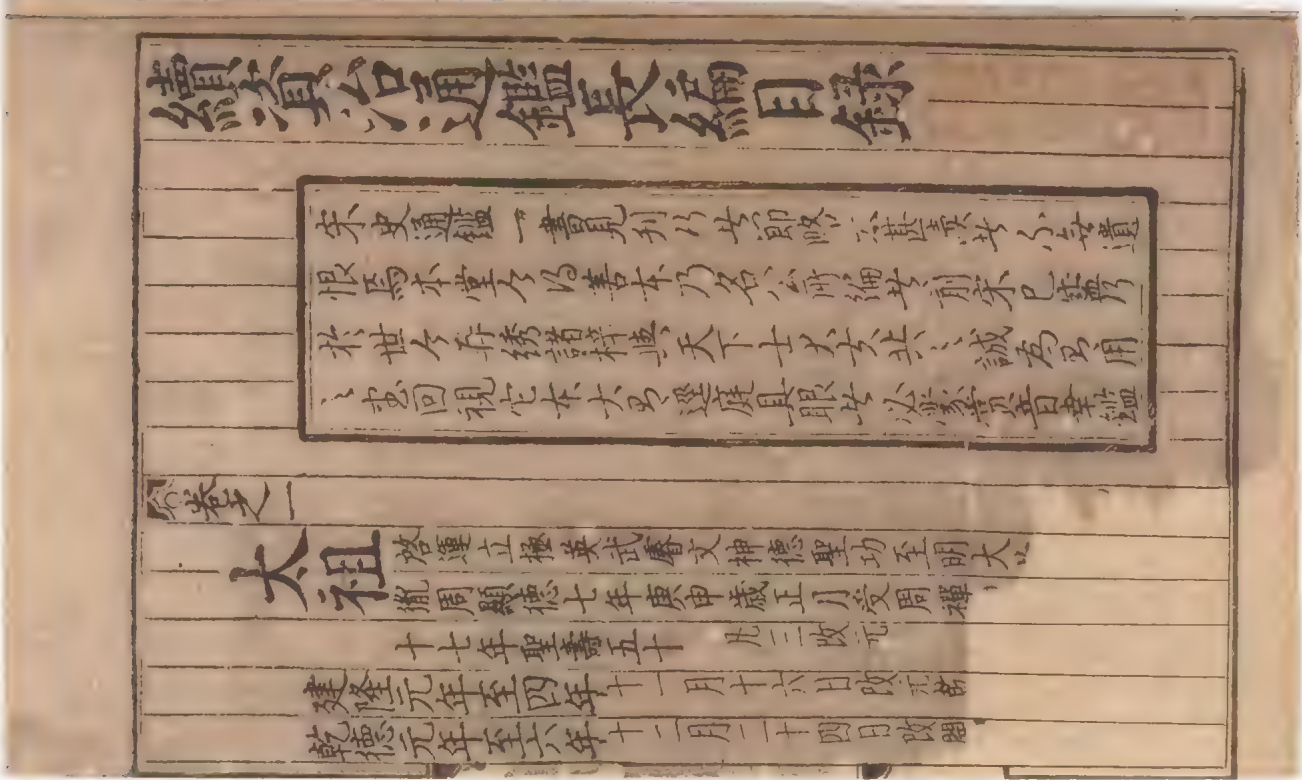 續資治通鑑長編目錄
宋史通鑑一書見刊行者節略太甚讀者不無遺
恨焉本堂今得善本乃名公所編者前宋已盛行
於世今再綉諸梓與天下士大夫共之誠為有用
之書回視它本大有逕庭具眼者必蒙賞音幸鑑
卷之一
太祖 啓運立極英武睿文神德聖功至明大
胤周顯德七年庚申歲正月受周禪
十七年聖壽五十 凡三改元
建隆元年至四年 十一月十六日改元
乾德元年至六年 十一月二十四日改開